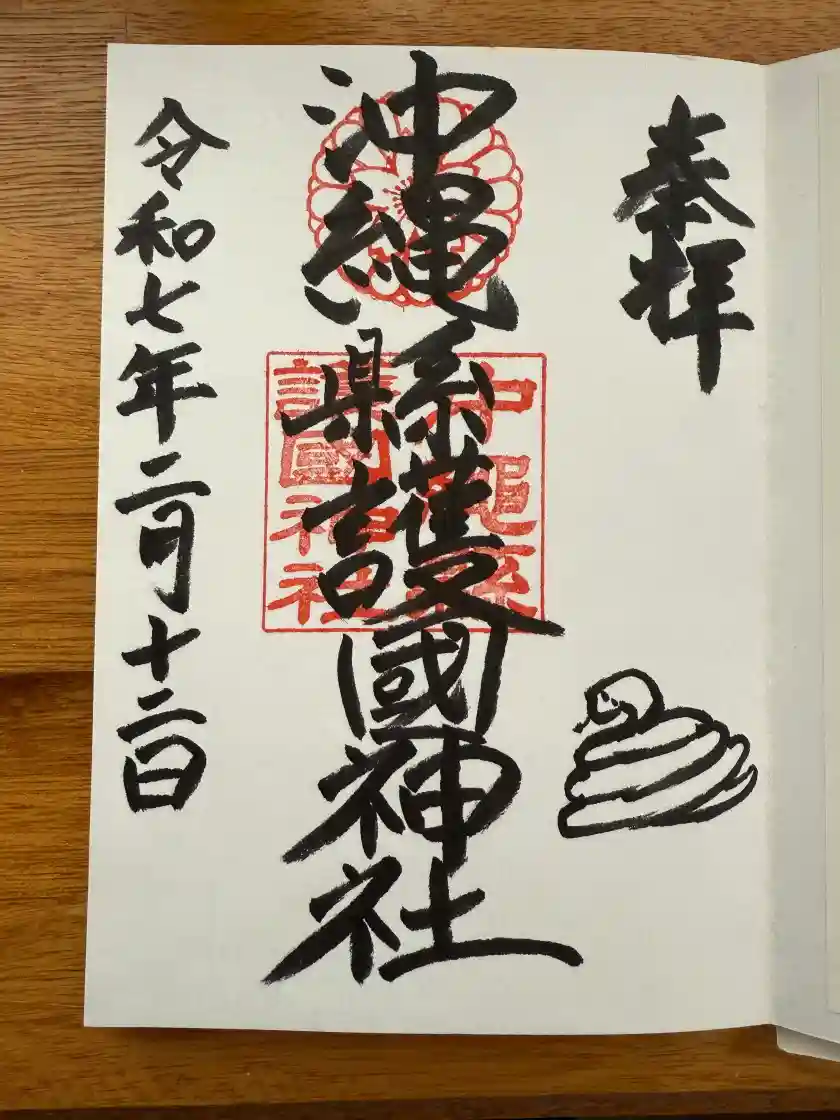 奉拝
沖縄縣護國神社
沖縄縣
護國神社
令和七年二月十二日